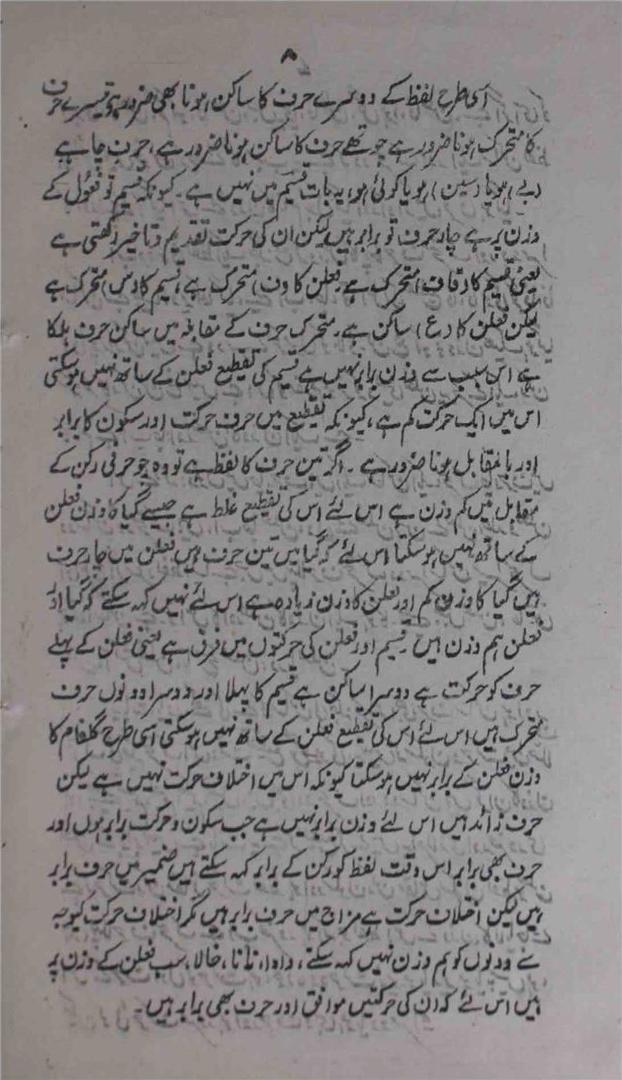 ۸
اسی طرح لفظ کے دوسرے حرف کا ساکن ہونا بھی ضرور ہو تیسرے حرف
کا متحرک ہونا ضرور ہے چوتھے حرف کا ساکن ہونا ضرور ہے، حرف چاہے
(بے) ہو یا (سین) ہو یا کوئی ہو، یہ بات قسیم میں نہیں ہے۔ کیونکہ قسیم تو فعول کے
وزن پر ہے چار حرف تو برابر ہیں لیکن ان کی حرکت تقدیم و تاخیر رکھتی ہے
یعنی قسیم کا (قاف) متحرک ہے۔ فعلن کا (ف) متحرک ہے، قسیم کا (س) متحرک ہے
لیکن فعلن کا (ع) ساکن ہے۔ متحرک حرف کے مقابلہ میں ساکن حرف ہلکا
ہے اس سبب سے وزن برابر نہیں ہے قسیم کی تقطیع فعلن کے ساتھ نہیں ہو سکتی
اس میں ایک حرکت کم ہے، کیونکہ تقطیع میں حرف حرکت اور سکون کا برابر
اور بالمقابل ہونا ضرور ہے۔ اگر تین حرف کا لفظ ہے تو وہ چو حرفی رکن کے
مقابل میں کم وزن ہے اس لئے اس کی تقطیع غلط ہے جیسے گیا کا وزن فعلن
کے ساتھ نہیں ہو سکتا اس لئے کہ گیا میں تین حرف ہیں فعلن میں چار حرف
ہیں گیا کا وزن کم اور فعلن کا وزن زیادہ ہے اس لئے نہیں کہہ سکتے کہ گیا اور
فعلن ہم وزن ہیں۔ قسیم اور فعلن کی حرکتوں میں فرق ہے یعنی فعلن کے پہلے
حرف کو حرکت ہے دوسرا ساکن ہے قسیم کا پہلا اور دوسرا دونوں حرف
متحرک ہیں اس لئے اس کی تقطیع فعلن کے ساتھ نہیں ہو سکتی اسی طرح گلفام کا
وزن فعلن کے برابر نہیں ہو سکتا کیونکہ اس میں اختلاف حرکت نہیں ہے لیکن
حرف زائد ہیں اس لئے وزن برابر نہیں ہے جب سکون و حرکت برابر ہوں اور
حرف بھی برابر اس وقت لفظ کو رکن کے برابر کہہ سکتے ہیں ضمیر میں حرف برابر
ہیں لیکن اختلاف حرکت ہے مزاج میں حرف برابر ہیں مگر اختلاف حرکت کیوجہ
سے دونوں کو ہم وزن نہیں کہہ سکتے، دادا، نانا، خالا، سب فعلن کے وزن پر
ہیں اس لئے کہ ان کی حرکتیں موافق اور حرف بھی برابر ہیں۔